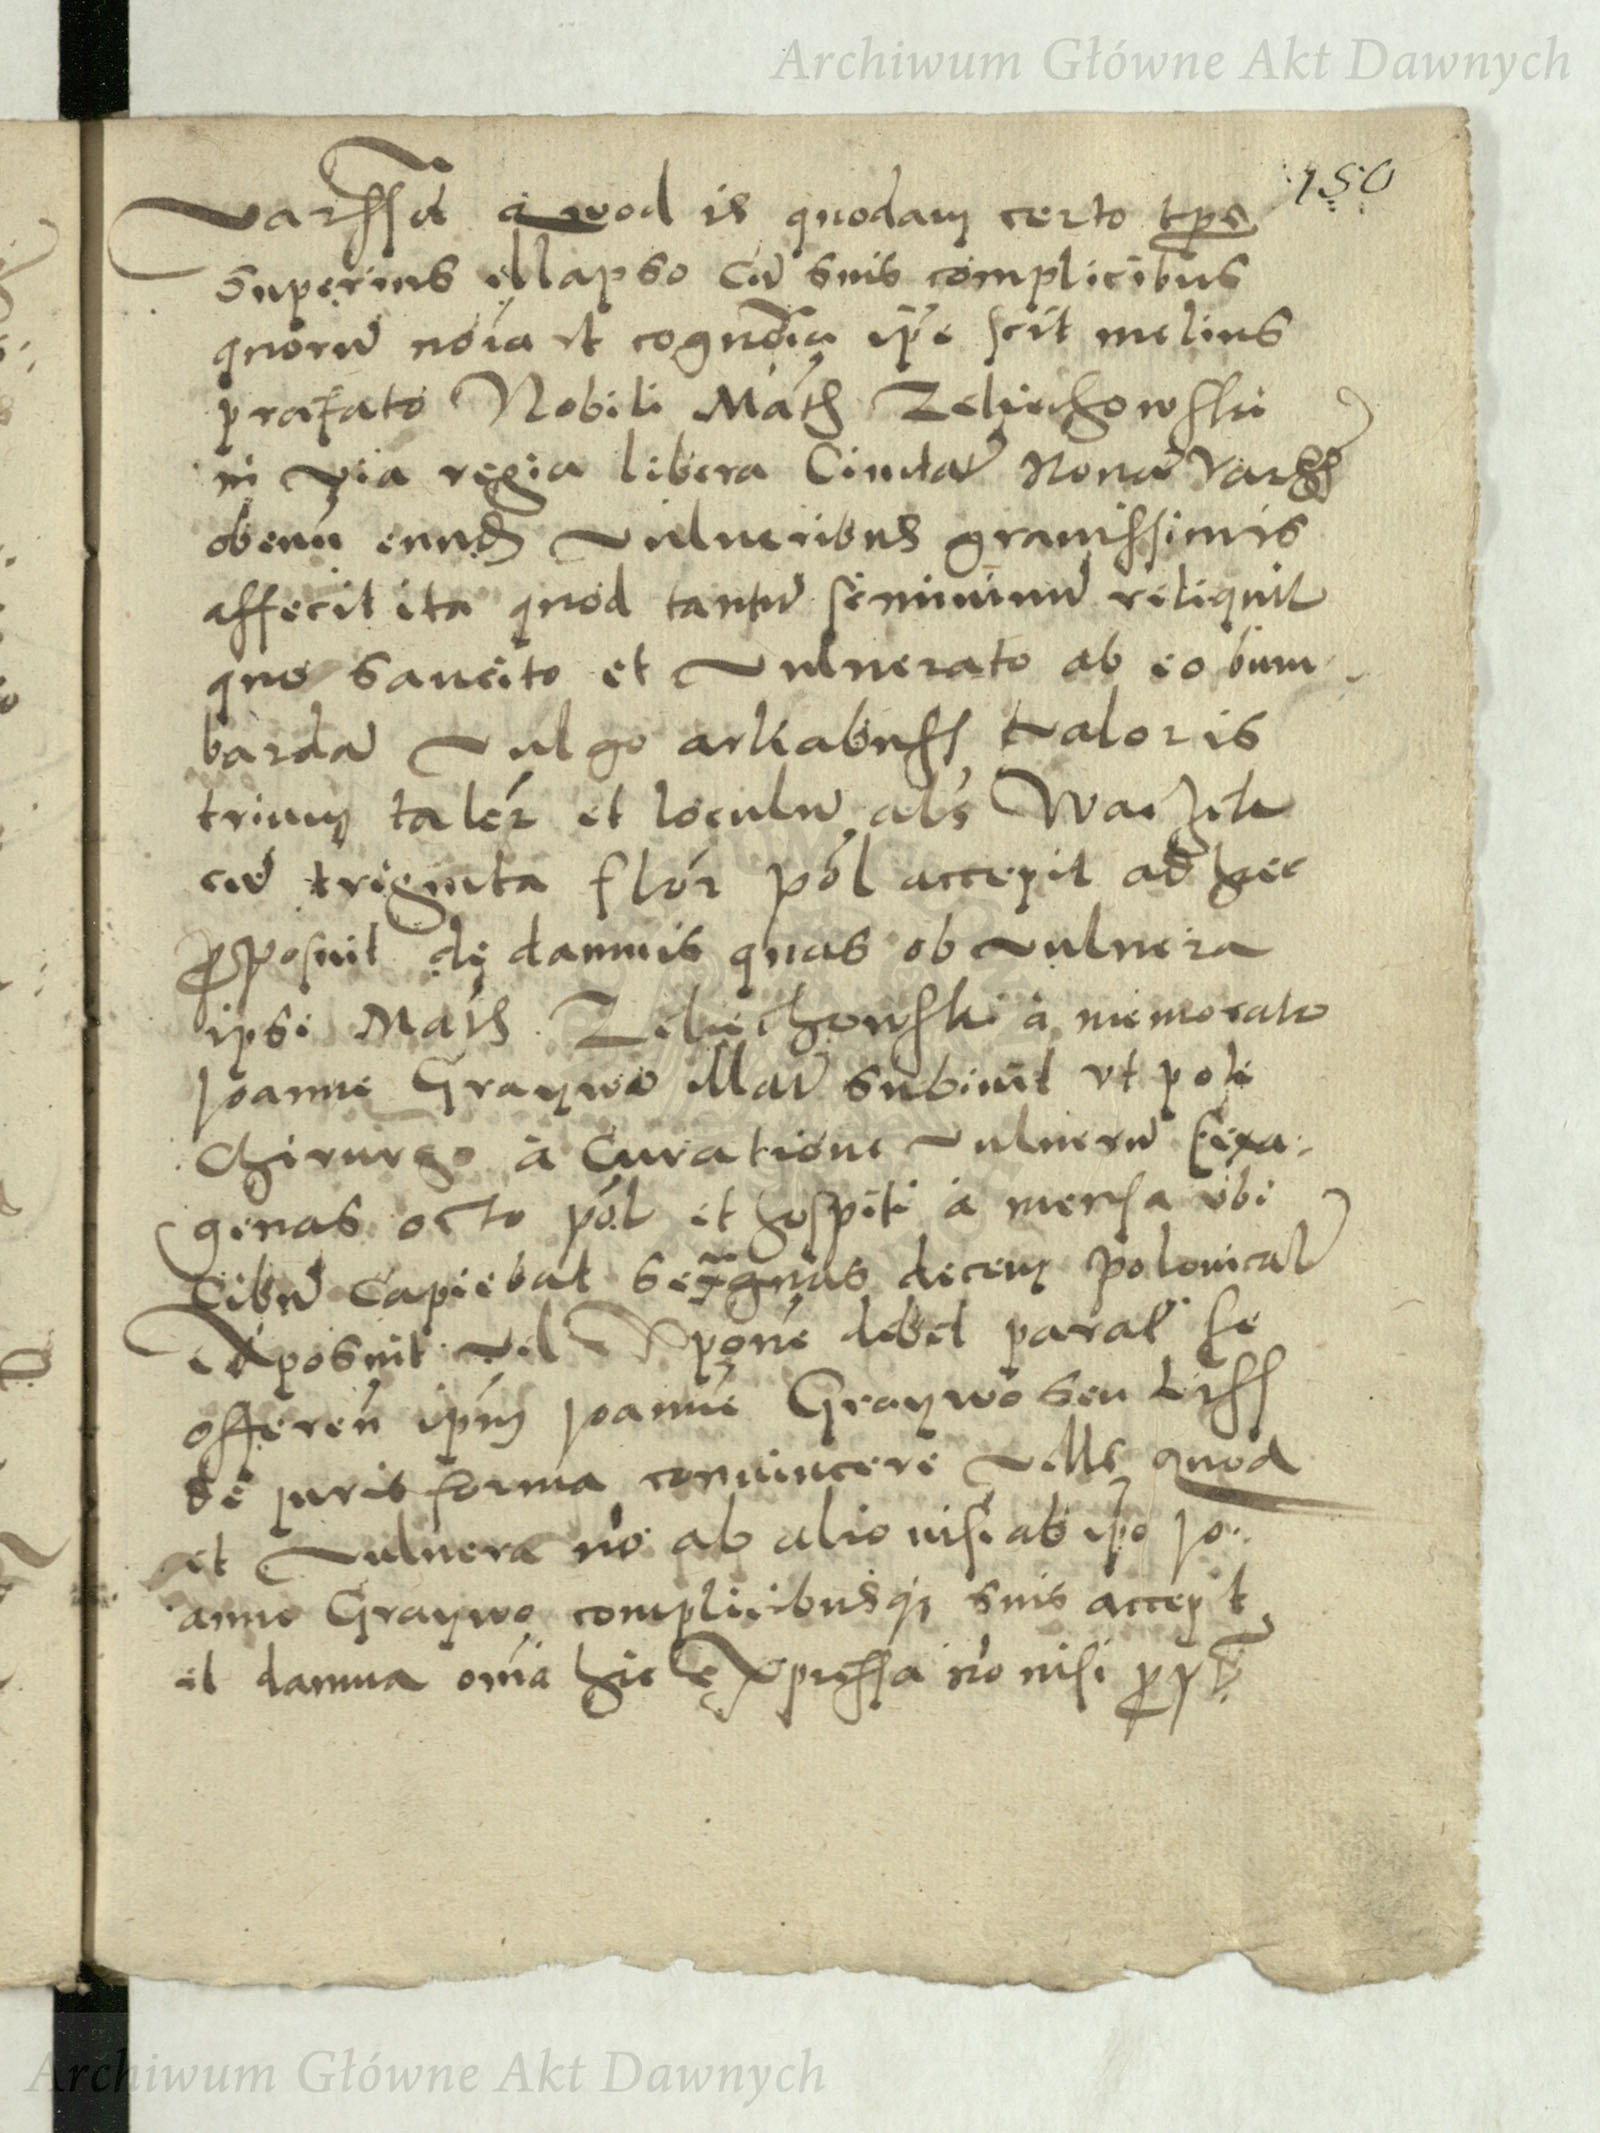 Archiwum Główne Akt Dawnych
150
Varssa quod is quodam certo tpe
superius illapso cū suis complicibus
quorū noīa et cognoīa ipse scit melius
præfato Nobili Math Zeliechowski
in via regia libera Ciuitat Noua Varss
obenn eundē vulneribus grauissimis
affecit ita quod tantū semiuiuū reliquit
quo saucito et vulnerato ab eo bum
bardā vulgo arkabuss valoris
trium taler et loculū als Waczek
cū triginta flor pol accepit ad hęc
proposuit de damnis quas ob vulnera
ipsi Math Zeliechowski à memorato
Joanne Graywo illat subiuit vt pote
Chirurgo à Curatione vulnerū sexa:
genas octo pol et hospiti à mensa vbi
Cibū Capiebat sexgnas decem polonical
exposuit vel exponē debet parat se
offeren ipm Joannē Graywo seu
de juris forma conuincere velle quod
et vulnera nō ab alio nisi ab ipo Jo:
anne Graywo complicibusq suis accepit
et damna omīa hic expressa nō nisi
Archiwum Główne Akt Dawnych